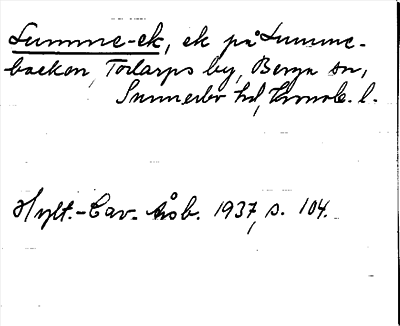 Lumme-ek, ek på Lumme-
backen, Torlarps by, Berga sn,
Sunnerbo hd, Kronob. l.
Hylt.-Cav. Årsb. 1937, s. 104.